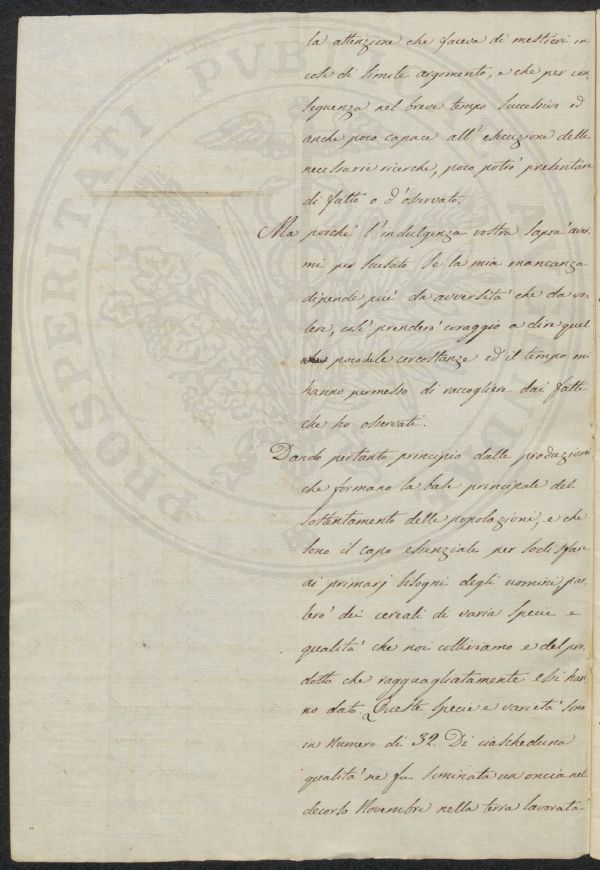 la attenzione che faceva di mestieri in
cose di simile argomento, e che per con=
seguenza nel breve tempo successivo ed
anche poco capace all' esecuzione delle
necessarie ricerche, poco potrò presentare
di fatto o d'osservato.
Ma poiché l'indulgenza vostra saprà aver-
mi per scusato se la mia mancanza
dipende più da avversità che da vo-
lere, così prenderò coraggio a dire quel
poco che le circostanze ed il tempo mi
hanno permesso di raccogliere dai fatti
che ho osservati.
Dando pertanto principio dalle produzioni
che formano la base principale del
sostentamento delle popolazioni, e che
sono il capo essenziale per sodisfare
ai primarj bisogni degli uomini, par-
lerò dei cereali di varia specie e
qualità che noi coltiviamo e del pro-
dotto che ragguagliatamente essi han-
no dato. Queste specie e varietà sono
in Numero di 32. Di ciascheduna
qualità ne fu seminata un oncia nel
decorso Novembre nella terra lavorata
PROSPERITATI PUBLICAE